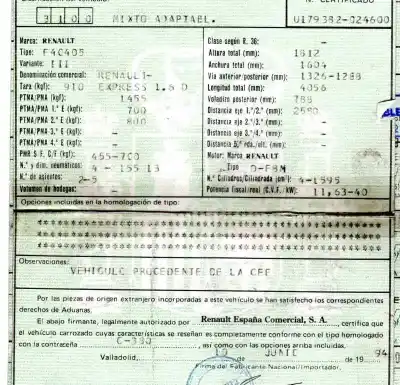 Nº CERTIFICADO
3100 MIXTO ADAPTABL. U179382-024600
Marca: RENAULT
Tipo: F40405
Variante: III
Denominación comercial: RENAULT-
EXPRESS 1.6 D
Tara (kgf): 910
PTMA/PMA (kgf): 1455
PTMA/PMA 1.º E (kgf): 700
PTMA/PMA 2.º E (kgf): 800
PTMA/PMA 3.º E (kgf): -
PTMA/PMA 4.º E (kgf): -
PMR S F, C/F (kgf): 455-700
N.º y dim. neumáticos: 4 - 155 13
N.º de asientos: 2-5
Volumen de bodegas: -
Clase según R. 36: -
Altura total (mm): 1812
Anchura total (mm): 1604
Vía anterior/posterior (mm): 1326-1288
Longitud total (mm): 4056
Voladizo posterior (mm): 788
Distancia eje 1.º/2.º (mm): 2580
Distancia eje 2.º/3.º (mm): -
Distancia eje 3.º/4.º (mm): -
Motor: Marca RENAULT
Tipo D-F8M
N.º Cilindros/Cilindrada (cm³): 4-1595
Potencia fiscal/real (C.V.F./kW): 11,63-40
Opciones incluidas en la homologación de tipo:
Observaciones:
VEHICULO PROCEDENTE DE LA CEE
Por las piezas de origen extranjero incorporadas a este vehículo se han satisfecho los correspondientes
derechos de Aduanas.
El abajo firmante, legalmente autorizado por Renault España Comercial, S. A., certifica que
el vehículo carrozado cuyas características se reseñan es completamente conforme con el tipo homologado
con la contraseña C-330, así como con las opciones arriba incluidas.
Valladolid, 10 de JUNIO de 19 94
Firma del Fabricante Nacional/Importador.